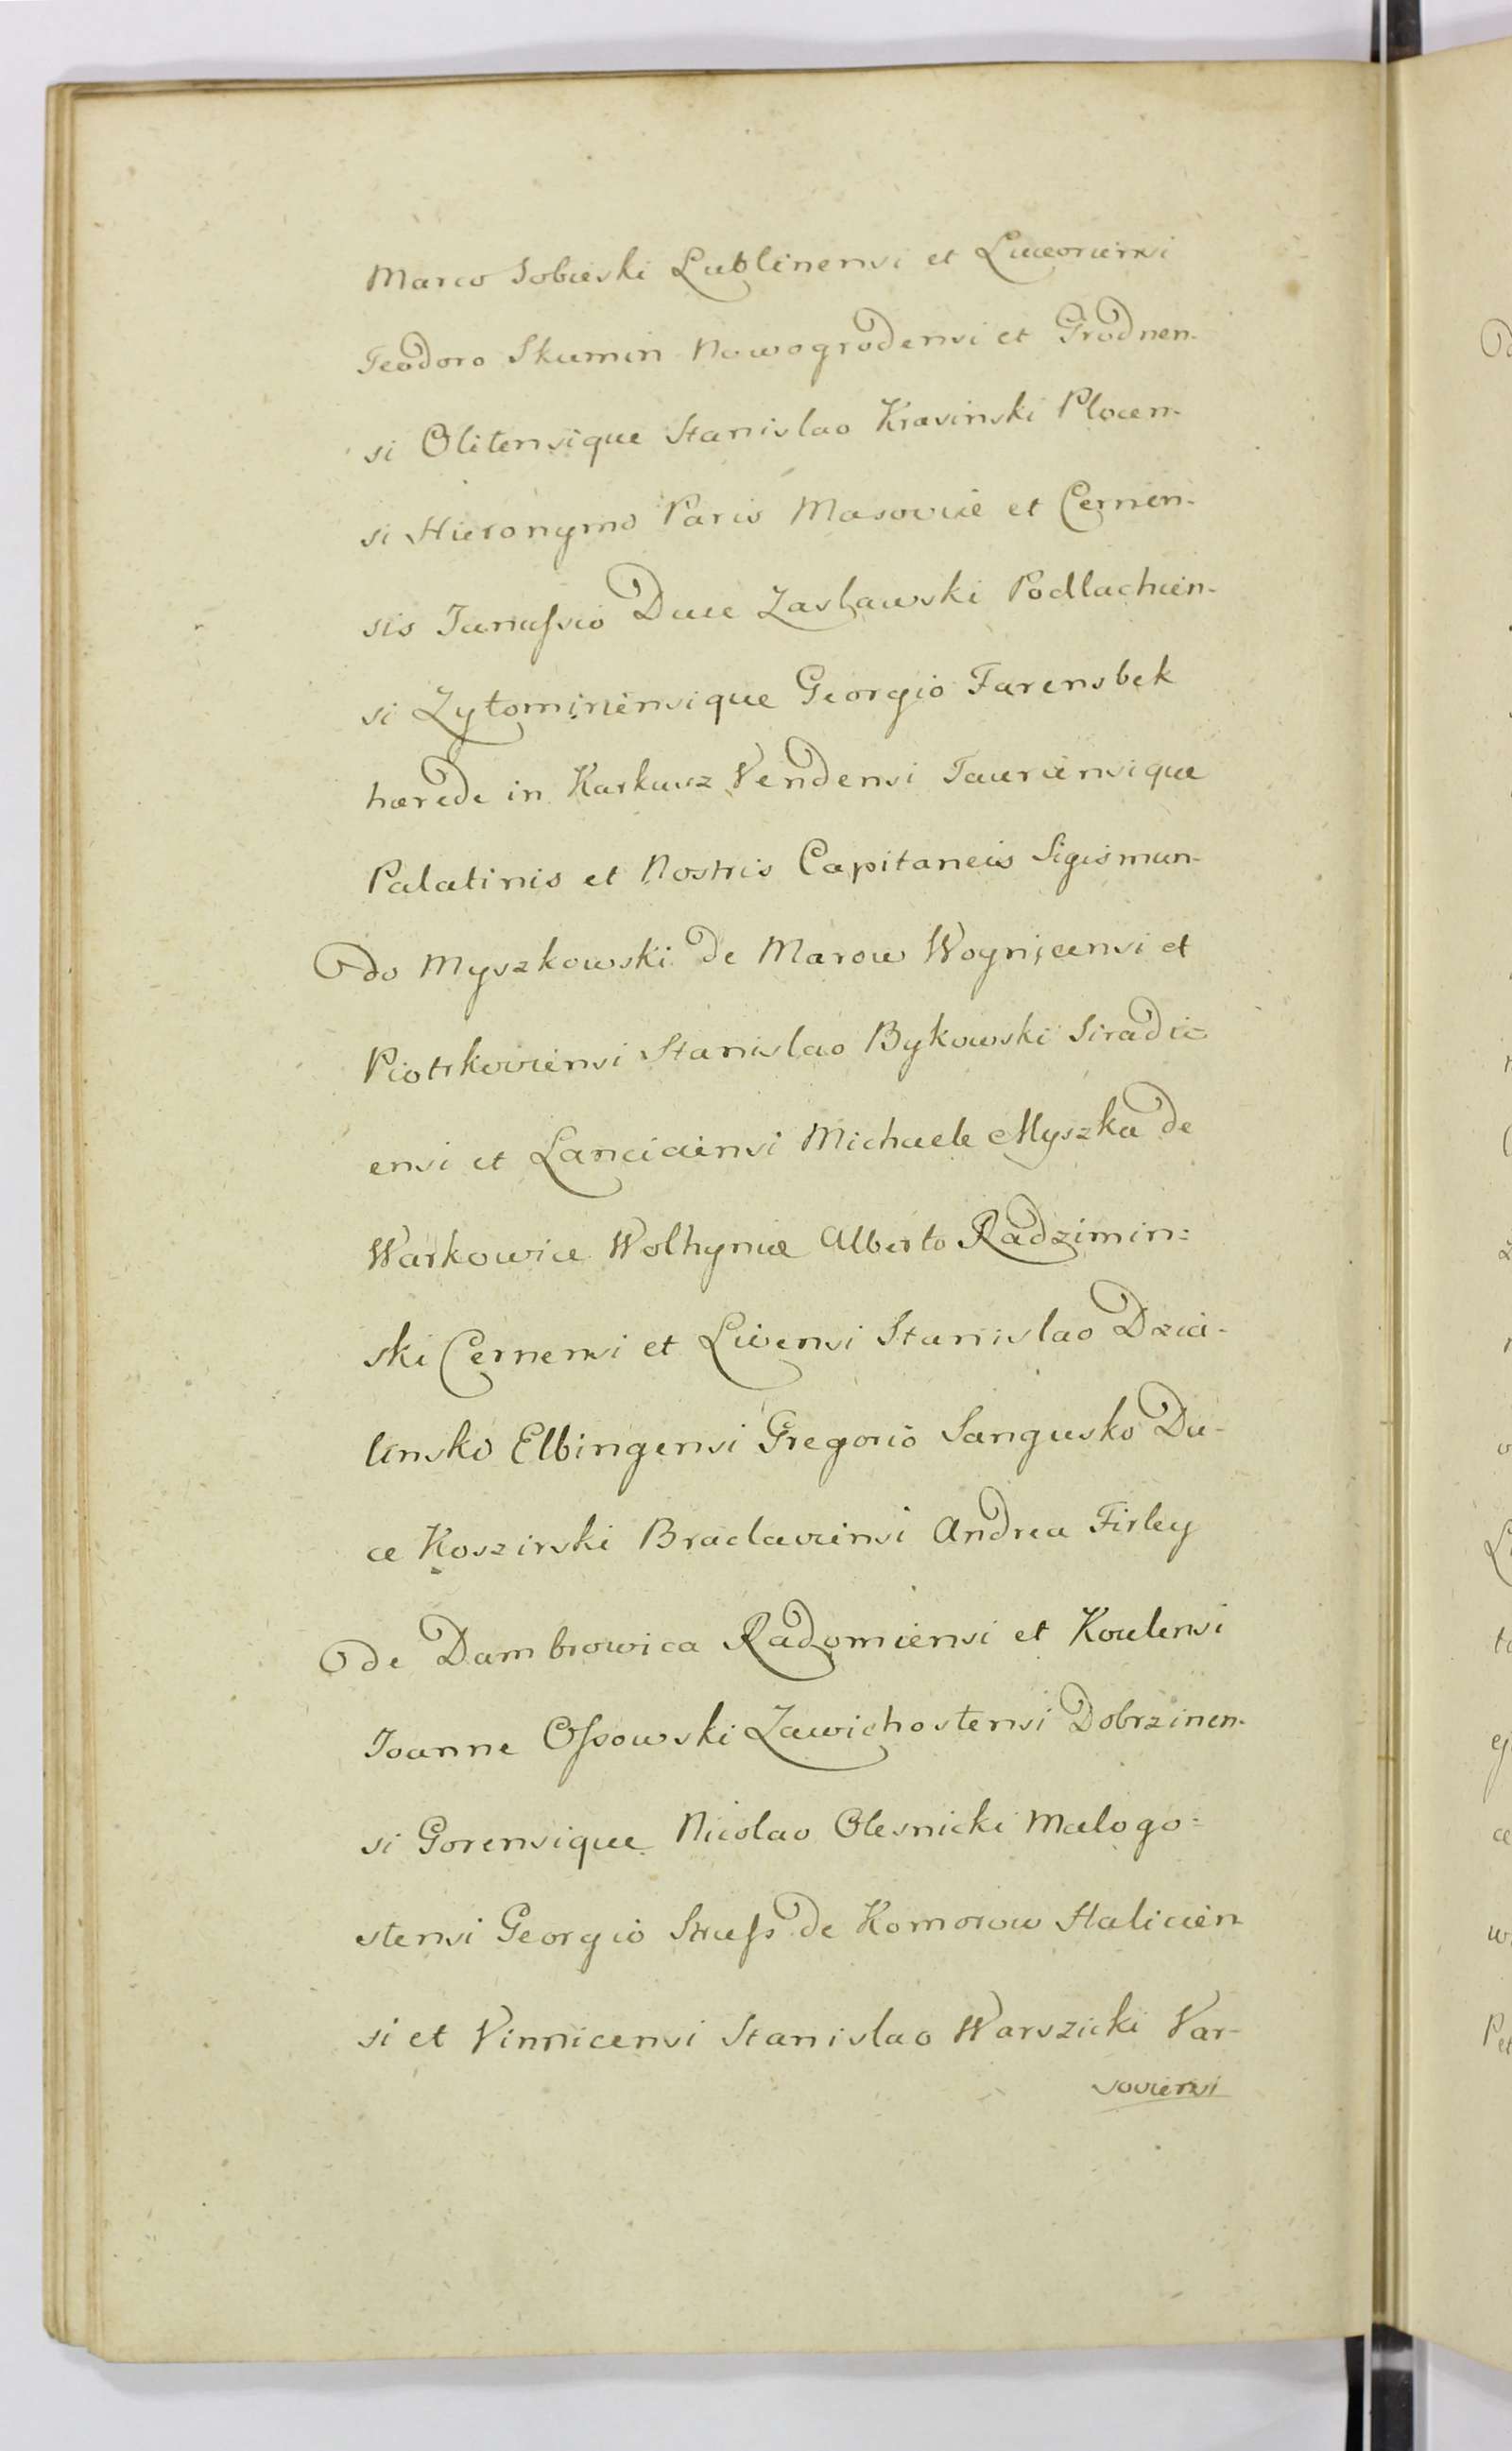 Marco Sobieski Lublinensi et Luceoriensi
Teodoro Skumin Nowogrodensi et Grodnen-
si Olitensique Stanislao Krasinski Plocen-
si Hieronymo Paris Masoviæ et Cernen-
sis Janussio Duce Zaslawski Podlachien-
si Zytomiriensique Georgio Farensbek
hærede in Karkusz Vendensi Tauriensique
Palatinis et Nostris Capitaneis Sigismun-
do Myszkowski de Marow Woynicensi et
Piotrkoviensi Stanislao Bykowski Siradi=
ensi et Lanciciensi Michaele Myszka de
Warkowice Wolhyniæ Alberto Radzimin=
ski Cernensi et Livensi Stanislao Dzia-
linsko Elbingensi Gregorio Sangusko Du-
ce Koszirski Braclaviensi Andrea Firley
de Dambrowica Radomiensi et Kovlensi
Joanne Ossowski Zawichostensi Dobrzinen-
si Gorensique Nicolao Olesnicki Malogo=
stensi Georgio Struss de Komorow Halicien-
si et Vinnicensi Stanislao Warszicki Var-
soviensi